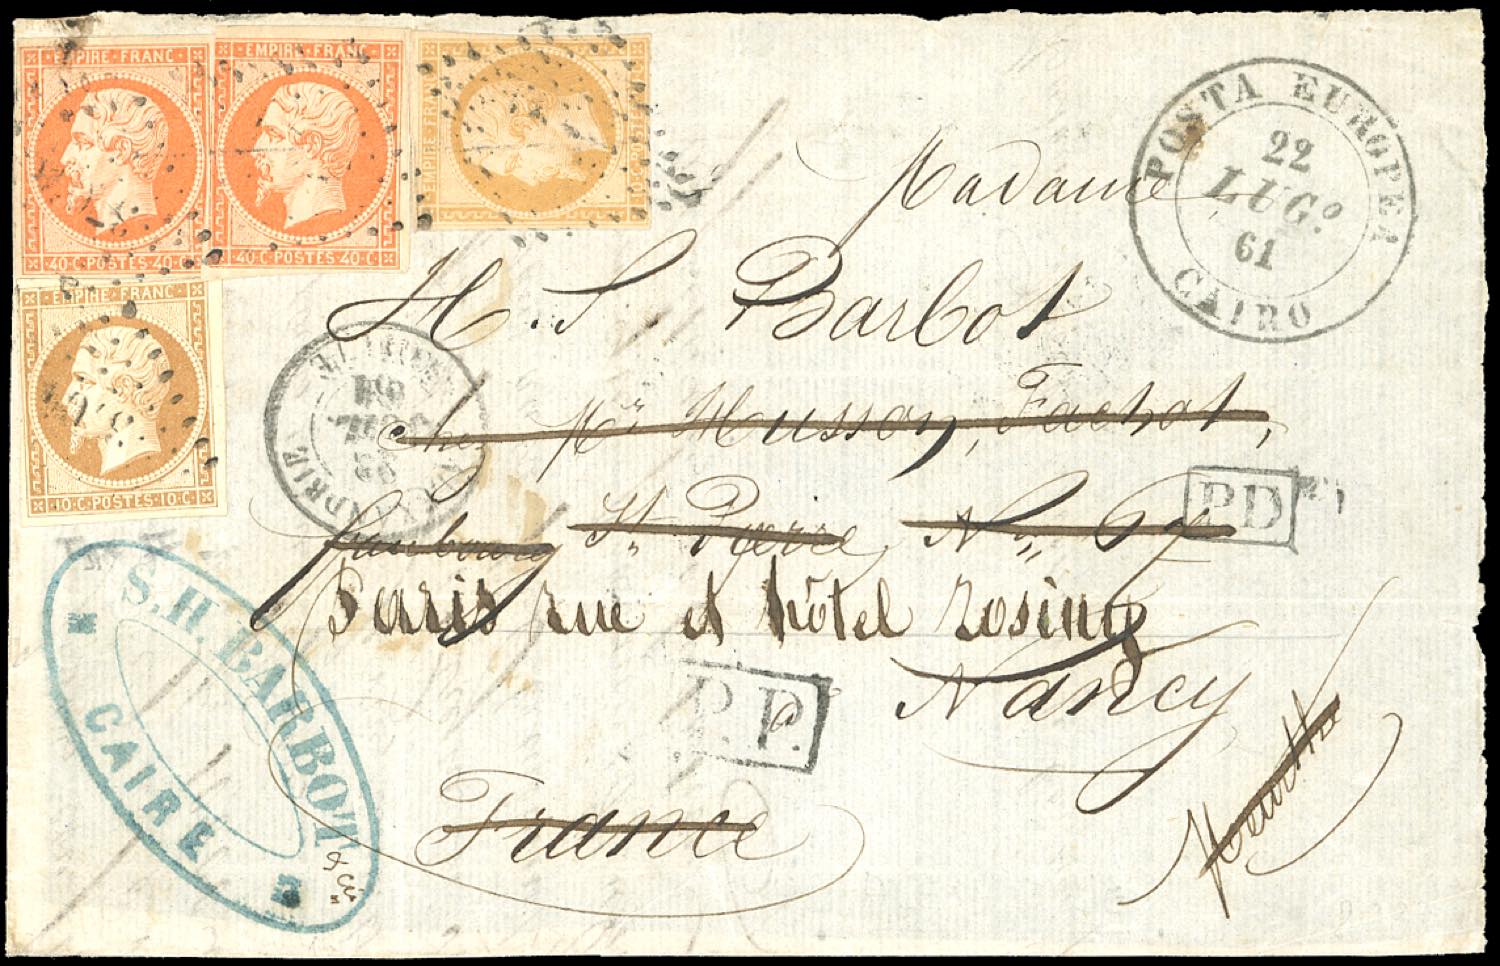 EMPIRE FRANC
40·C·POSTES·40·C·
EMPIRE FRANC
40·C·POSTES·40·C·
EMPIRE FRANC
10·C·POSTES
EMPIRE FRANC
10·C·POSTES·10·C·
3704
POSTA EUROPEA
22
LUGº
61
CAIRO
Madame
H. S Barbot
chez Mr Husson, Fachot,
faubourg St Pierre, Nº
Paris rue et hôtel
Nancy
France
ALEXANDRIE
PD
P.P.
S.H. BARBOT
CAIRE